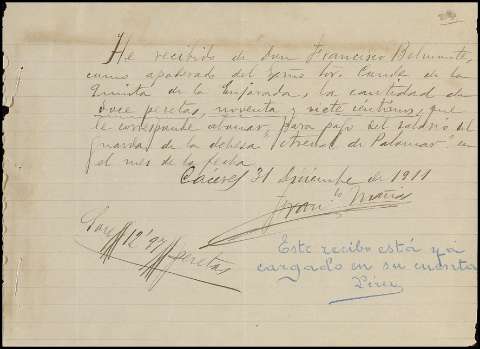 He recibido de Don Francisco Belmonte,
como apoderado del Exmo Sor. Conde de la
Quinta de la Enjarada, la cantidad de
doce pesetas, noventa y siete céntimos, que
le corresponde abonar, para pago del salario del
guarda de la dehesa de Palomar, en
el mes de la fecha.
Cáceres 31 diciembre de 1911
Franco
Son 12'97 pesetas
Este recibo está ya
cargado en su cuenta